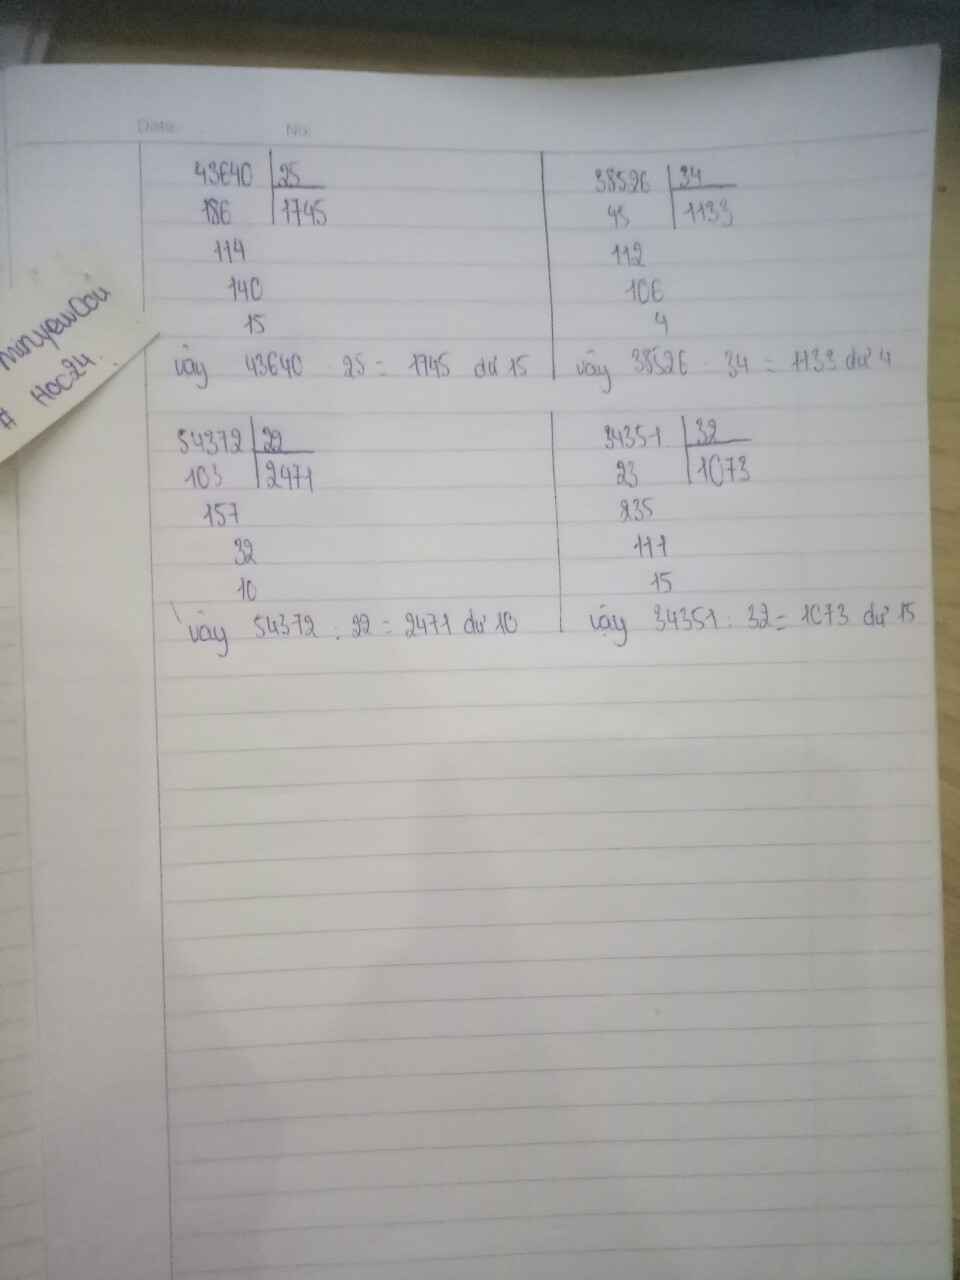 Date No
43640 25
186 1745
114
140
15
vậy 43640 : 25 = 1745 dư 15
38526 34
45 1133
112
106
4
vậy 38526 : 34 = 1133 dư 4
54372 22
103 2471
157
32
10
vậy 54372 : 22 = 2471 dư 10
34351 32
23 1073
235
111
15
vậy 34351 : 32 = 1073 dư 15
# Hoc24.